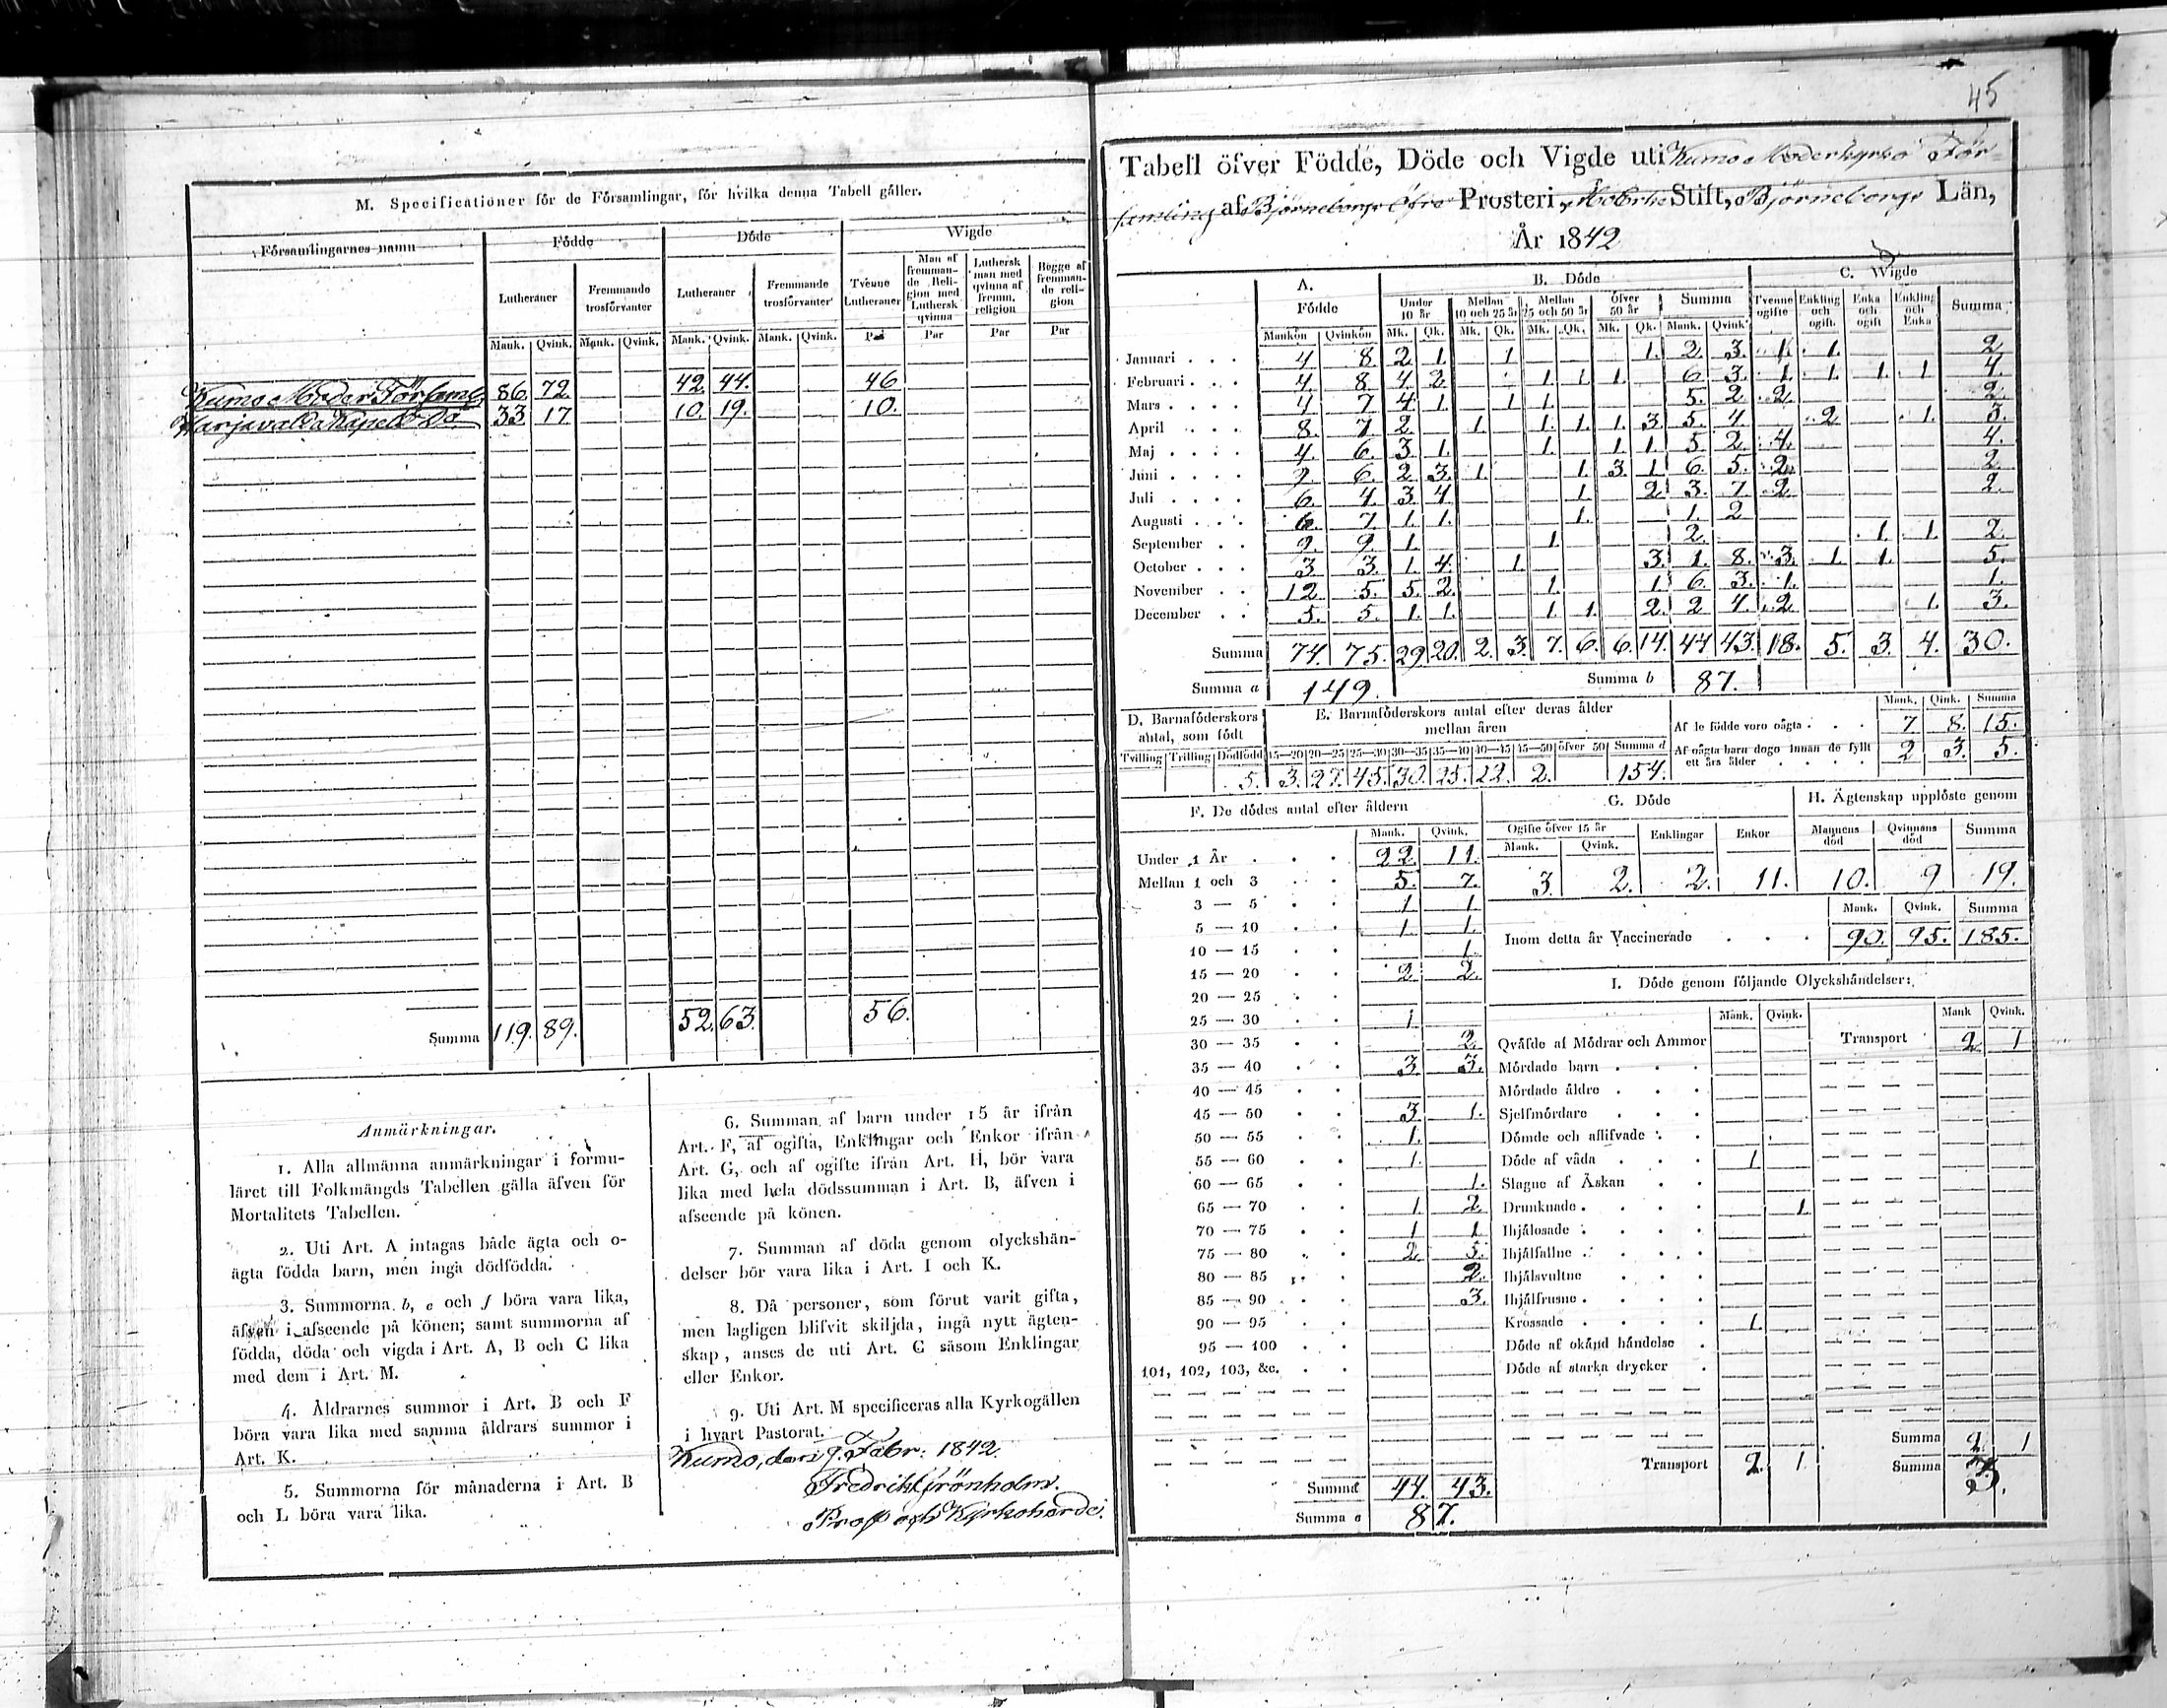 M. Specificationer för de Församlingar, för hvilka denna Tabell gäller.
Församlingarnes namn | Födde | Döde | Wigde
Lutheraner | Fremmande trosförvanter | Lutheraner | Fremmande trosförvanter | Tvenne Lutheraner | Man af fremmande Religion med Luthersk qvinna | Luthersk man med qvinna af fremm. religion | Begge af fremmande religion
Mank. | Qvink. | Mank. | Qvink. | Mank. | Qvink. | Mank. | Qvink. | Par | Par | Par | Par
Kumo Moder Församl. 86. 72. 42. 44. 46
Harjavalda Kapell Do 33 17 10. 19. 10.
Summa 119. 89. 52. 63. 56.
Anmärkningar.
1. Alla allmänna anmärkningar i formu-
läret till Folkmängds Tabellen gälla äfven för
Mortalitets Tabellen.
2. Uti Art. A intagas både ägta och o-
ägta födda barn, men inga dödfödda.
3. Summorna b, e och f böra vara lika,
äfven i afseende på könen; samt summorna af
födda, döda och vigda i Art. A, B och C lika
med dem i Art. M.
4. Åldrarnes summor i Art. B och F
böra vara lika med samma åldrars summor i
Art. K.
5. Summorna för månaderna i Art. B
och L böra vara lika.
6. Summan af barn under 15 år ifrån
Art. F, af ogifta, Enklingar och Enkor ifrån
Art. G, och af ogifte ifrån Art. H, bör vara
lika med hela dödssumman i Art. B, äfven i
afseende på könen.
7. Summan af döda genom olyckshän-
delser bör vara lika i Art. I och K.
8. Då personer, som förut varit gifta,
men lagligen blifvit skiljda, ingå nytt ägten-
skap, anses de uti Art. C såsom Enklingar
eller Enkor.
9. Uti Art. M specificeras alla Kyrkogällen
i hvart Pastorat.
Kumo, den 9. Febr. 1842.
Fredrik Grönholm.
Prost och Kyrkoherde.
45
Tabell öfver Födde, Döde och Vigde uti Kumo Moderkyrko För-
samling af Björneborgs Öfre Prosteri, Åbo Erke Stift, Björneborgs Län,
År 1842
A. Födde | B. Döde | C. Wigde
Under 10 år | Mellan 10 och 25 år | Mellan 25 och 50 år | Öfver 50 år | Summa | Tvenne ogifte | Enkling och ogift. | Enka och ogift | Enkling och Enka | Summa
Mankön | Qvinkön | Mk. | Qk. | Mk. | Qk. | Mk. | Qk. | Mk. | Qk. | Mank. | Qvink.
Januari 4 8. 2 1. 1. 1. 2 3. 1. 1. 2
Februari 4. 8. 4 2 1. 1. 1. 6. 3. 1. 1. 1. 1 4.
Mars 4 7 4. 1. 1 1. 5. 2 2 2.
April 8. 7. 2. 1. 1. 1. 1. 3 5. 4. 2 1. 3.
Maj 4. 6. 3 1. 1. 1 1. 5. 2 4. 4.
Juni 9. 6. 2 3. 1. 1. 3. 1 6. 5. 2 2.
Juli 6. 4. 3 4 1. 2 3. 7. 2 2.
Augusti 6. 7. 1. 1. 1. 1. 2
September 9. 9. 1. 1. 2. 1. 1. 2.
October 3 3. 1. 4. 1. 3. 1. 8. 3. 1. 1. 5.
November 12 5. 5. 2. 1. 1. 6. 3. 1. 1.
December 5. 5. 1. 1. 1. 1. 2. 2 4. 2 1. 3.
Summa 74. 75. 29 20. 2. 3. 7. 6. 6. 14. 44 43. 18. 5. 3. 4. 30.
Summa a 149. Summa b 87.
D. Barnaföderskors antal, som födt
E. Barnaföderskors antal efter deras ålder mellan åren
Tvilling | Trilling | Dödfödd | 15—20 | 20—25 | 25—30 | 30—35 | 35—40 | 40—45 | 45—50 | öfver 50 | Summa d
5. 3. 27. 45. 30. 25. 22. 2. 154.
Mank. | Qink. | Summa
Af de födde voro oägta 7. 8. 15.
Af oägta barn dogo innan de fyllt ett års ålder 2 3. 5.
F. De dödes antal efter åldern
Mank. | Qvink.
Under 1 År 22. 11.
Mellan 1 och 3 5. 7.
3 — 5 1 1
5 — 10 1. 1.
10 — 15 1.
15 — 20 2 2.
20 — 25
25 — 30 1.
30 — 35 2.
35 — 40 3 3.
40 — 45
45 — 50 3 1.
50 — 55 1.
55 — 60 1.
60 — 65 1.
65 — 70 1. 2
70 — 75 1 1.
75 — 80 2 5.
80 — 85 2.
85 — 90 3.
90 — 95
95 — 100
101, 102, 103, &c.
Summa 44. 43.
Summa e 87.
G. Döde
Ogifte öfver 15 år | Enklingar | Enkor
Mank. | Qvink.
3. 2. 2. 11.
H. Ägtenskap upplöste genom
Mannens död | Qvinnans död | Summa
10. 9 19.
Mank. | Qvink. | Summa
Inom detta år Vaccinerade 90. 95. 185.
I. Döde genom följande Olyckshändelser:
Mank. | Qvink. | Mank | Qvink.
Qväfde af Mödrar och Ammor Transport 2 1
Mördade barn
Mördade äldre
Sjelfmördare
Dömde och aflifvade
Döde af våda 1
Slagne af Åskan
Drunknade 1.
Ihjälosade
Ihjälfallne
Ihjälsvultne
Ihjälfrusne
Krossade 1.
Döde af okänd händelse
Döde af starka drycker
Summa 2 1
Transport 2. 1. Summa 3.